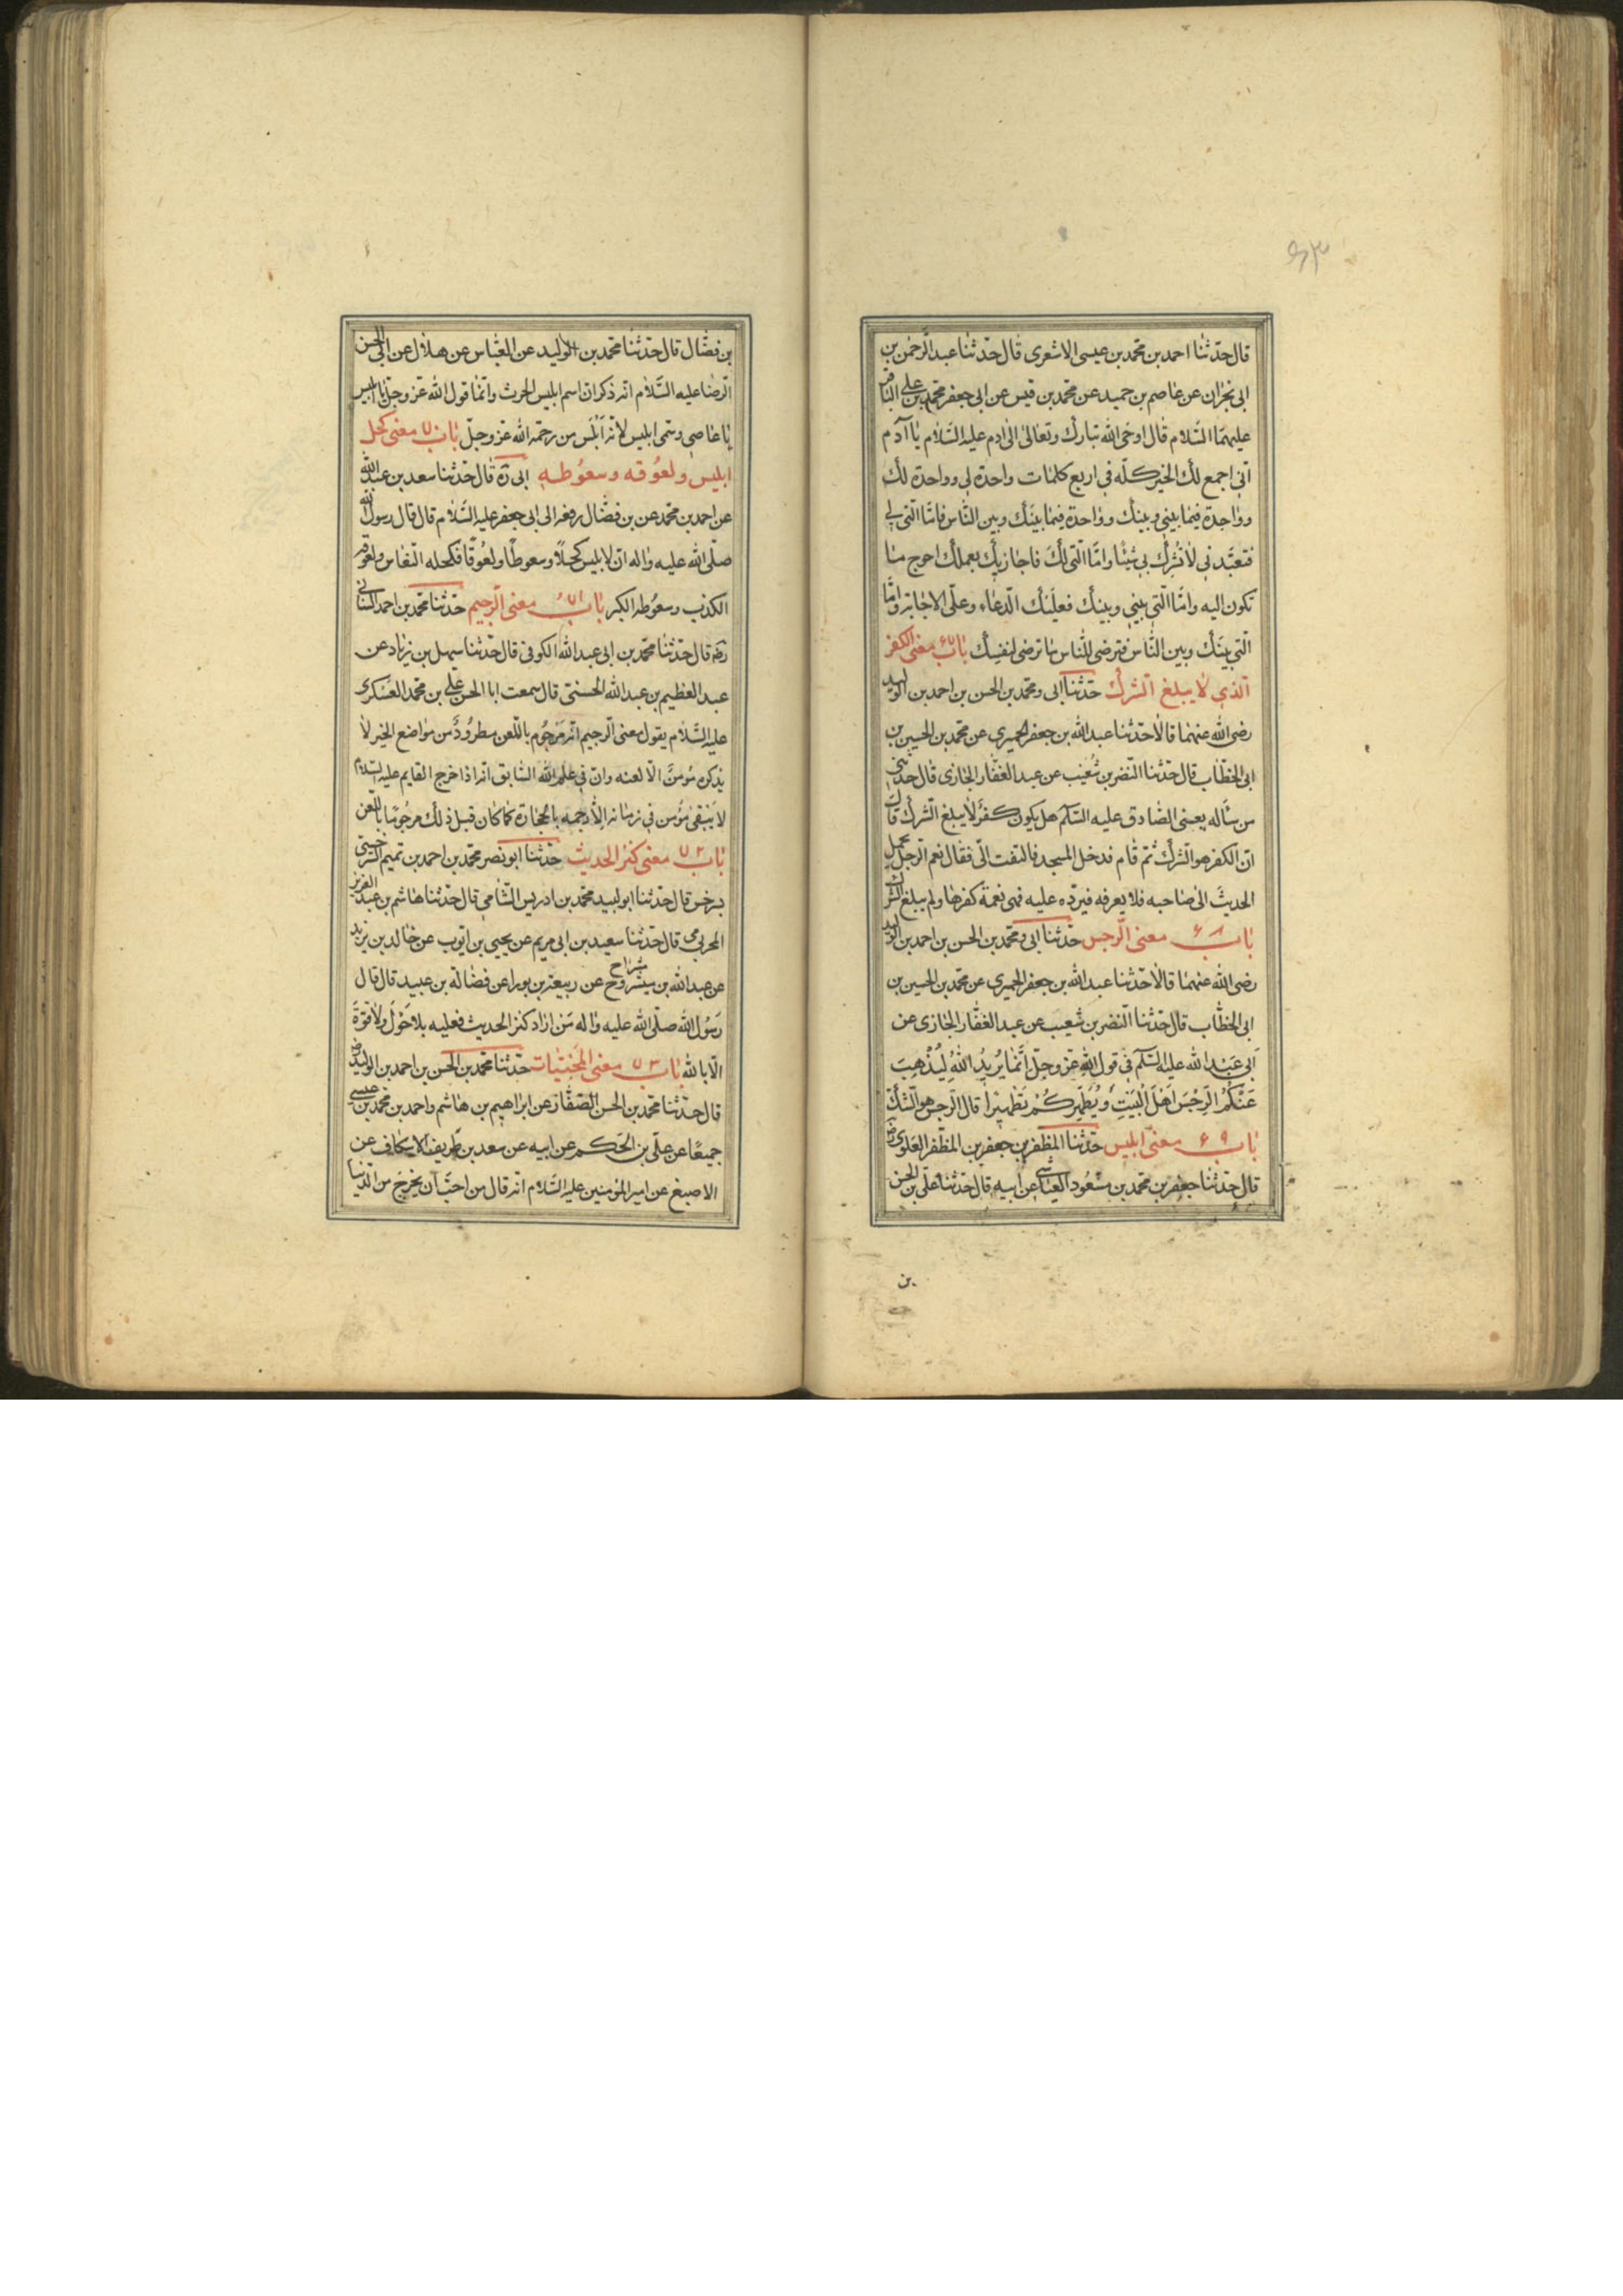 ۶۳
قال حدّثنا احمد بن محمّد بن عيسى الاشعرى قال حدّثنا عبد الرّحمن بن
ابى نجران عن عاصم بن حميد عن محمّد بن قيس عن ابى جعفر محمّد بن على الباقر
عليهما السّلام قال اوحى الله تبارك وتعالى الى ادم عليه السّلام يا آدم
انّى اجمع لك الخير كلّه فى اربع كلمات واحدة لى وواحدة لك
وواحدة فيما بينى وبينك وواحدة فيما بينك وبين النّاس فامّا الّتى لى
فتعبّدنى لا تشرك بى شيئًا وامّا الّتى لك فاجازيك بعملك احوج ما
تكون اليه وامّا الّتى بينى وبينك فعليك الدّعاء وعلىّ الاجابة وامّا
الّتى بينك وبين النّاس فترضى للنّاس ما ترضى لنفسك باب ۶۷ معنى الكفر
الّذى لا يبلغ الشّرك حدّثنا ابى ومحمّد بن الحسن بن احمد بن الوليد
رضى الله عنهما قالا حدّثنا عبد الله بن جعفر الحميرى عن محمّد بن الحسين بن
ابى الخطّاب قال حدّثنا النّضر بن شُعَيب عن عبد الغفّار الجازى قال حدّثنى
من سأله يعنى الصّادق عليه السّلام هل يكون كفرٌ لا يبلغ الشّرك قال
انّ الكفر هو الشّرك ثمّ قام فدخل المسجد فالتفت الىّ فقال نعم الرّجل يحمل
الحديث الى صاحبه فلا يعرفه فيردّه عليه فهى نعمة كفرها ولم يبلغ الشّرك
باب ۶۸ معنى الرّجس حدّثنا ابى ومحمّد بن الحسن بن احمد بن الوليد
رضى الله عنهما قالا حدّثنا عبد الله بن جعفر الحميرى عن محمّد بن الحسين بن
ابى الخطّاب قال حدّثنا النّضر بن شعيب عن عبد الغفّار الجازى عن
اَبى عَبْدِ الله عليه السّلام فى قول الله عزّ وجلّ اِنَّما يُريدُ اللهُ لِيُذْهِبَ
عَنْكُمُ الرِّجْسَ اَهْلَ الْبَيْتِ وَيُطَهِّرَكُمْ تَطْهِيْرًا قال الرّجس هو الشّك
باب ۶۹ معنى ابليس حدّثنا المظفّر بن جعفر بن المظفّر العَلَوى رض
قال حدّثنا جعفر بن محمّد بن مسْعُود العيّاشى عن ابيه قال حدّثنا على بن الحسن
بن
بن فضّال قال حدّثنا محمّد بن الوليد عن العبّاس عن هلال عن ابى الحسن
الرّضا عليه السّلام انّه ذكر ان اسم ابليس الحرث وانّما قول الله عزّ وجلّ يا ابليس
يا عاصى وسمّى ابليس لانّه اَبْلَس من رحمة الله عزّ وجلّ باب ۷۰ معنى كحل
ابليس ولعُوقه وسعُوطه ابى رَه قال حدّثنا سعد بن عبد الله
عن احمد بن محمّد عن بن فضّال رفعه الى ابى جعفر عليه السّلام قال قال رسول الله
صلّى الله عليه واله انّ لابليس كحلًا وسعوطًا ولعُوقًا فكحله النّعاس ولعوقه
الكذب وسعُوطه الكبر باب ۷۱ معنى الرّجيم حدّثنا محمّد بن احمد السّنانى
رضه قال حدّثنا محمّد بن ابى عبد الله الكوفى قال حدّثنا سهل بن زياد عن
عبد العظيم بن عبد الله الحسنىّ قال سمعت ابا الحسن على بن محمّد العسكرى
عليه السّلام يقول معنى الرّجيم انّه مَرجُوم باللّعن مطرُودٌ من مواضع الخير لا
يذكره مؤمنٌ الّا لعنه وانّ فى علم الله السّابق انّه اذا خرج القايم عليه السّلام
لا يَبْقى مؤمن فى زمانه الّا رجمه بالحجارة كما كان قبل ذلك مرجُومًا باللّعن
باب ۷۲ معنى كنز الحديث حدّثنا ابو نصر محمّد بن احمد بن تميم السّرخسى
بسرخس قال حدّثنا ابو لبيد محمّد بن ادريس الشّامى قال حدّثنا هاشم بن عبد العزيز
المخرمى قال حدّثنا سعيد بن ابى مريم عن يحيى بن ايّوب عن خالد بن يزيد
عن عبد الله بن عن ربيعة بن بورا عن فضالة بن عبيد قال قال
رَسُول الله صلّى الله عليه واله مَن اراد كنز الحديث فعليه بلا حَوْلَ ولا قوّةَ
الّا بالله باب ۷۳ معنى المخبيات حدّثنا محمّد بن الحسن بن احمد بن الوليد رض
قال حدّثنا محمّد بن الحسن الصّفّار عن ابراهيم بن هاشم واحمد بن محمّد بن عيسى
جميعًا عن علىّ بن الحَكم عن ابيه عن سعد بن طَريف الاسكاف عن
الاصبغ عن امير المؤمنين عليه السّلام انّه قال من احبّ ان يخرج من الدّنيا